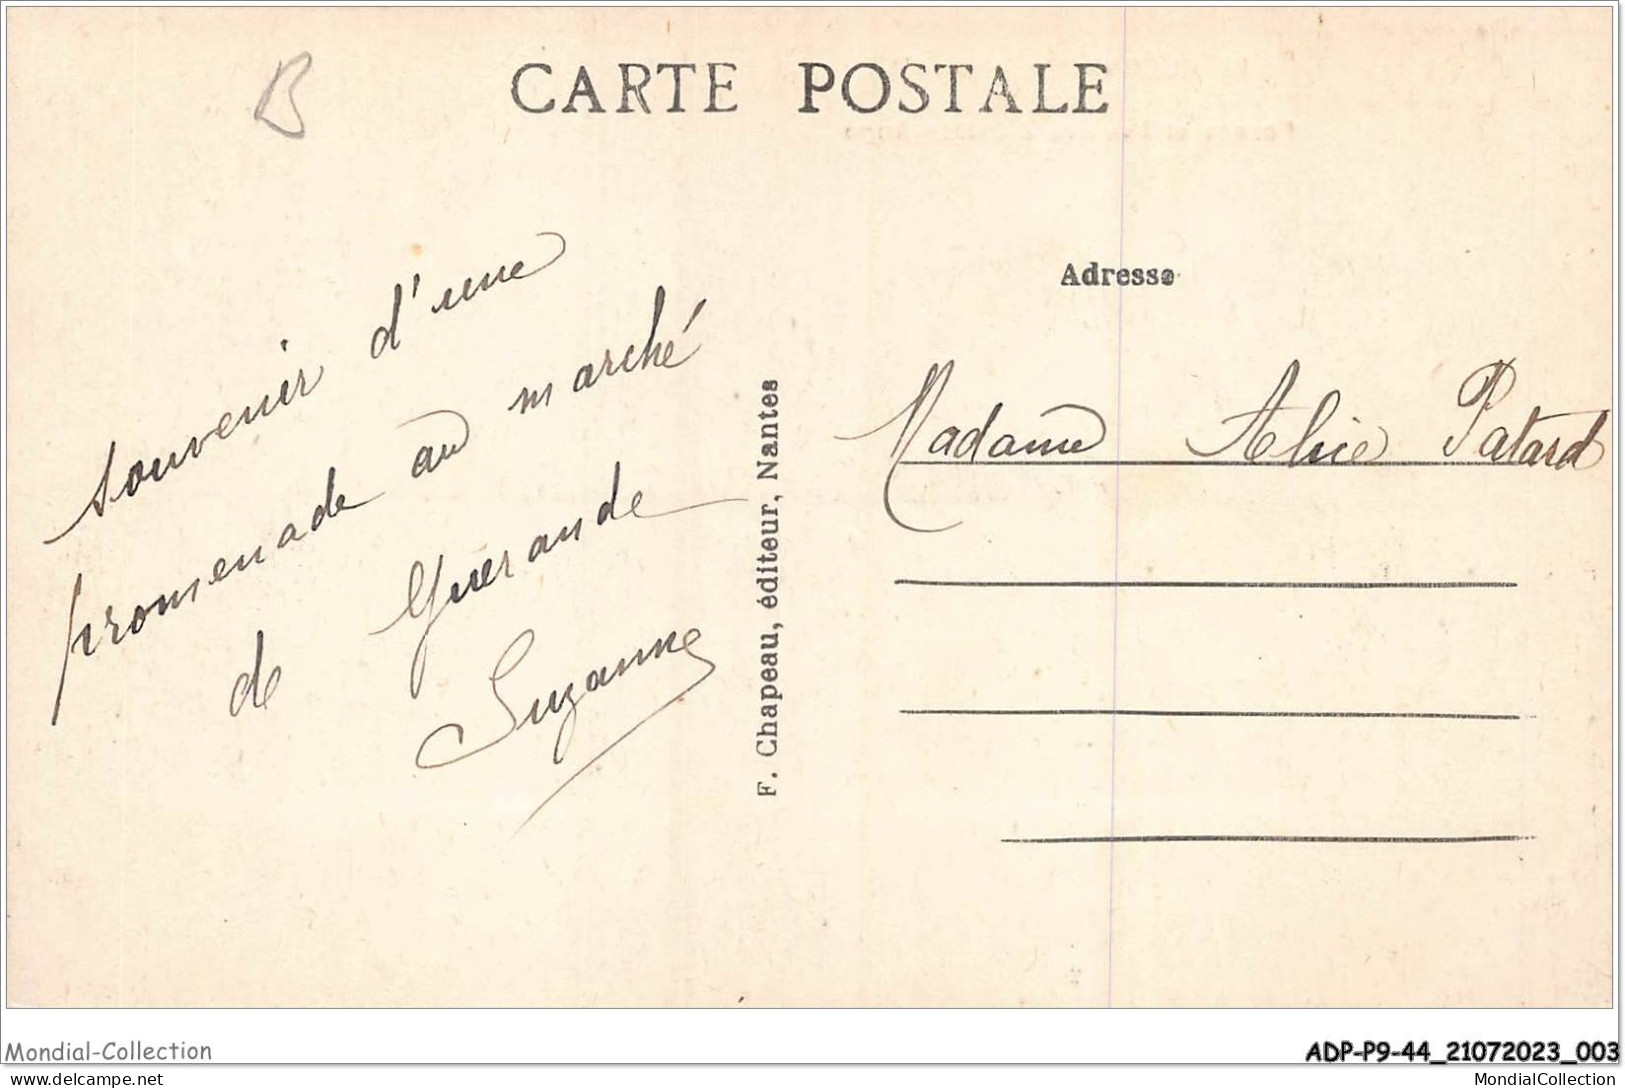 B
CARTE POSTALE
souvenir d'une
promenade au marché
de Guérande
Suzanne
F. Chapeau, éditeur, Nantes
Adresse
Madame Patard
Mondial-Collection
ADP-P9-44_21072023_003
www.delcampe.net
MondialCollection